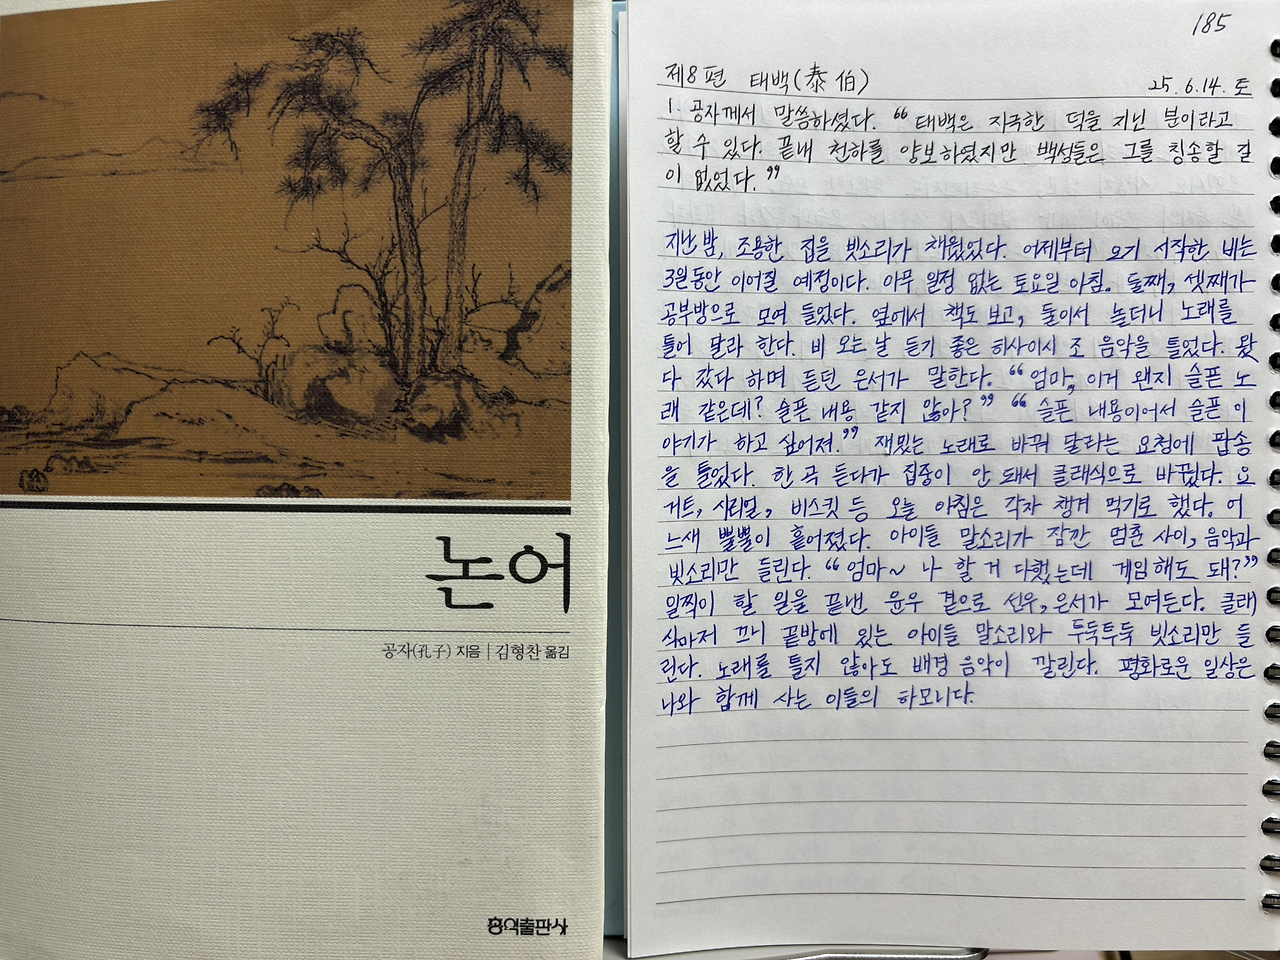 논어
공자(孔子) 지음 | 김형찬 옮김
홍익출판사
185
제8편 태백(泰伯)
25.6.14.토
1. 공자께서 말씀하셨다. “태백은 지극한 덕을 지닌 분이라고
할 수 있다. 끝내 천하를 양보하였지만 백성들은 그를 칭송할 길
이 없었다.”
지난밤, 조용한 집을 빗소리가 채웠었다. 어제부터 오기 시작한 비는
3일동안 이어질 예정이다. 아무 일정 없는 토요일 아침. 둘째, 셋째가
공부방으로 모여 들었다. 옆에서 책도 보고, 둘이서 놀더니 노래를
틀어 달라 한다. 비 오는 날 듣기 좋은 히사이시 조 음악을 틀었다. 왔
다 갔다 하며 듣던 은서가 말한다. “엄마, 이거 왠지 슬픈 노
래 같은데? 슬픈 내용 같지 않아?” “슬픈 내용이어서 슬픈 이
야기가 하고 싶어져.” 재밌는 노래로 바꿔 달라는 요청에 팝송
을 틀었다. 한 곡 듣다가 집중이 안 돼서 클래식으로 바꿨다. 요
거트, 시리얼, 비스킷 등 오늘 아침은 각자 챙겨 먹기로 했다. 어
느새 뿔뿔이 흩어졌다. 아이들 말소리가 잠깐 멈춘 사이, 음악과
빗소리만 들린다. “엄마~ 나 할 거 다했는데 게임해도 돼?”
일찍이 할 일을 끝낸 윤우 곁으로 선우, 은서가 모여든다. 클래
식마저 끄니 끝방에 있는 아이들 말소리와 투둑투둑 빗소리만 들
린다. 노래를 틀지 않아도 배경 음악이 깔린다. 평화로운 일상은
나와 함께 사는 이들의 하모니다.